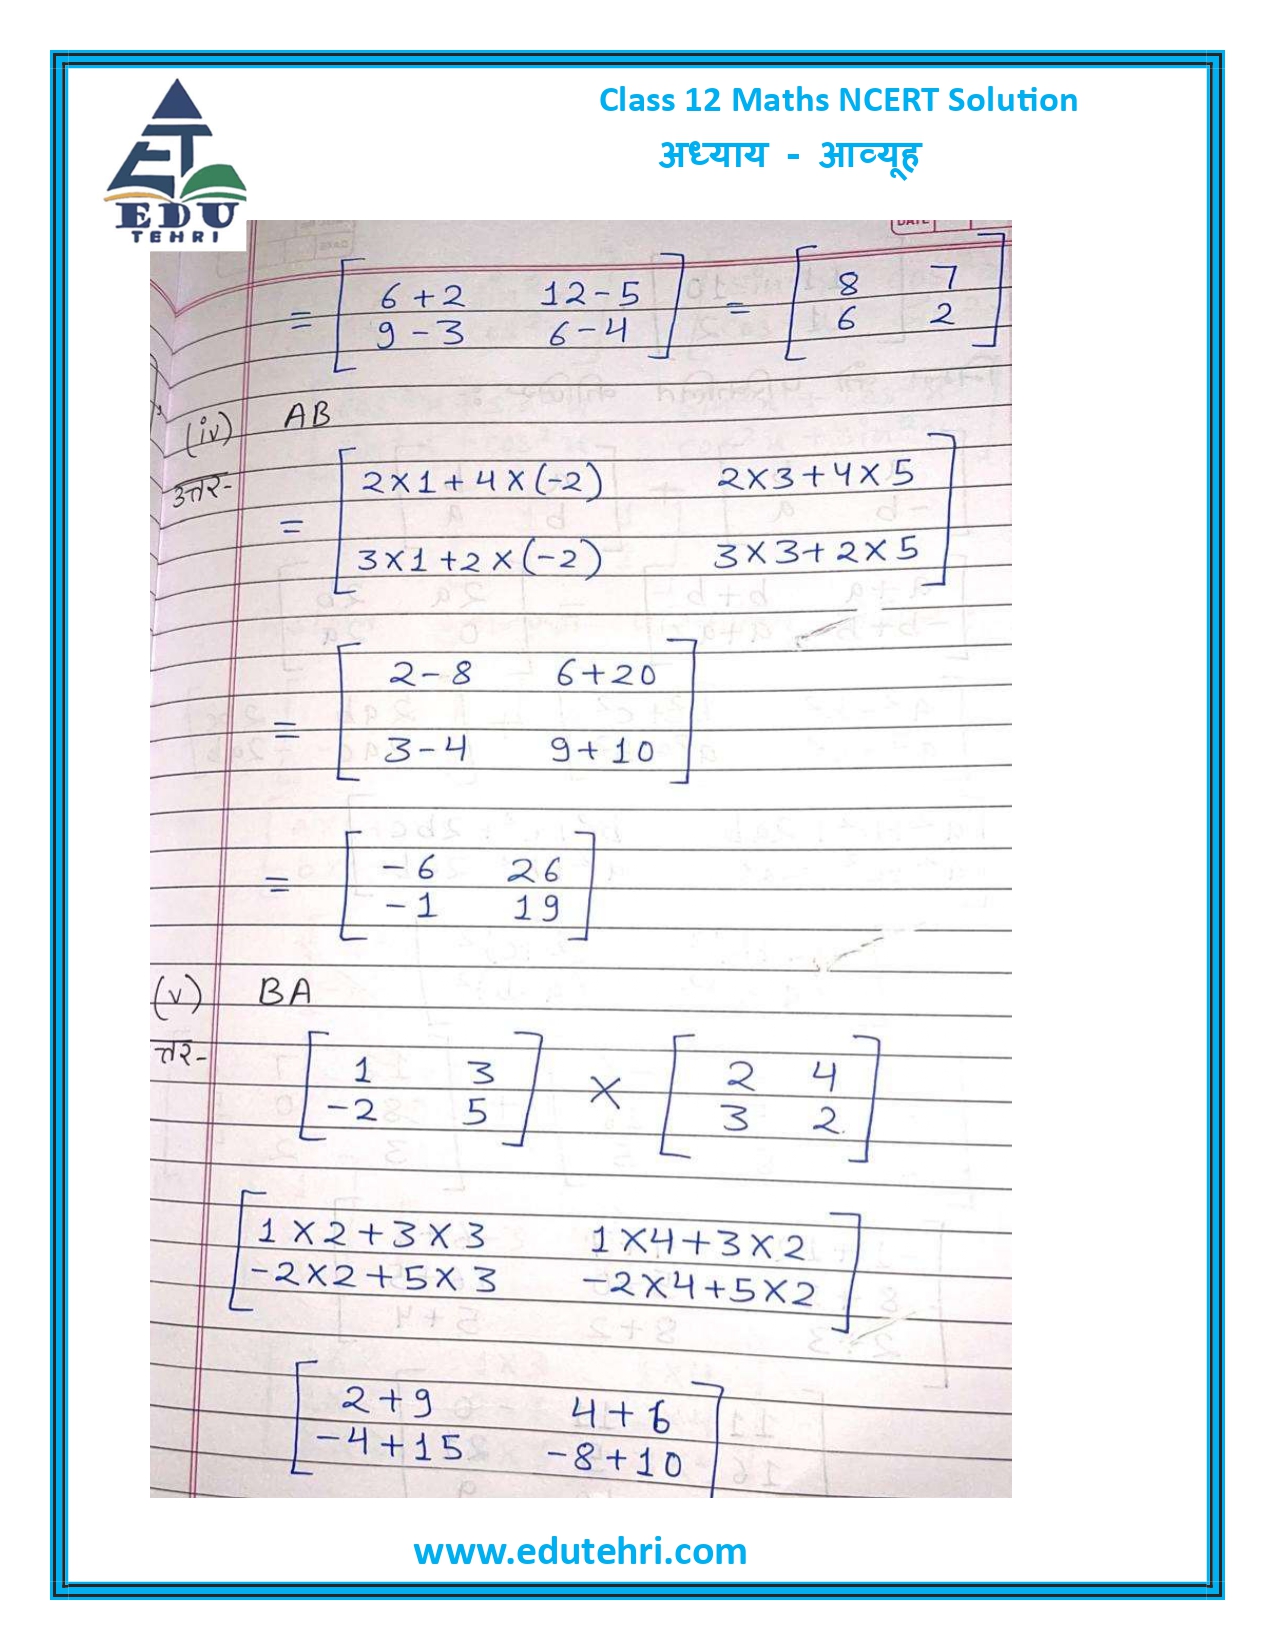 Class 12 Maths NCERT Solution
अध्याय - आव्यूह
EDU
TEHRI
DATE
= [ 6+2 12-5 ] = [ 8 7 ]
[ 9-3 6-4 ] [ 6 2 ]
(iv) AB
उत्तर-
[ 2×1+4×(-2) 2×3+4×5 ]
=
[ 3×1+2×(-2) 3×3+2×5 ]
[ 2-8 6+20 ]
=
[ 3-4 9+10 ]
= [ -6 26 ]
[ -1 19 ]
(v) BA
त्तर-
[ 1 3 ] × [ 2 4 ]
[ -2 5 ] [ 3 2 ]
[ 1×2+3×3 1×4+3×2 ]
[ -2×2+5×3 -2×4+5×2 ]
[ 2+9 4+6 ]
[ -4+15 -8+10 ]
www.edutehri.com